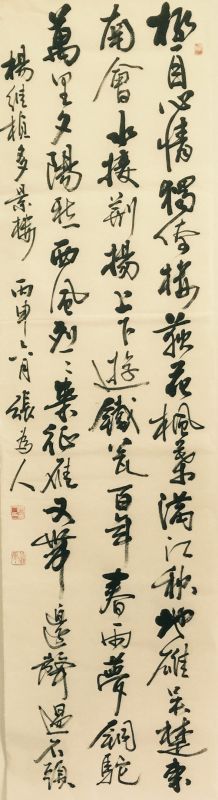 極目心情獨倚樓荻花楓葉滿江秋地雄吳楚東
南會水接荊揚上下游鐵瓮百年春雨夢銅駝
萬里夕陽愁西風來征雁又帶邊聲過石頭
楊維楨多景樓 丙申月張為人